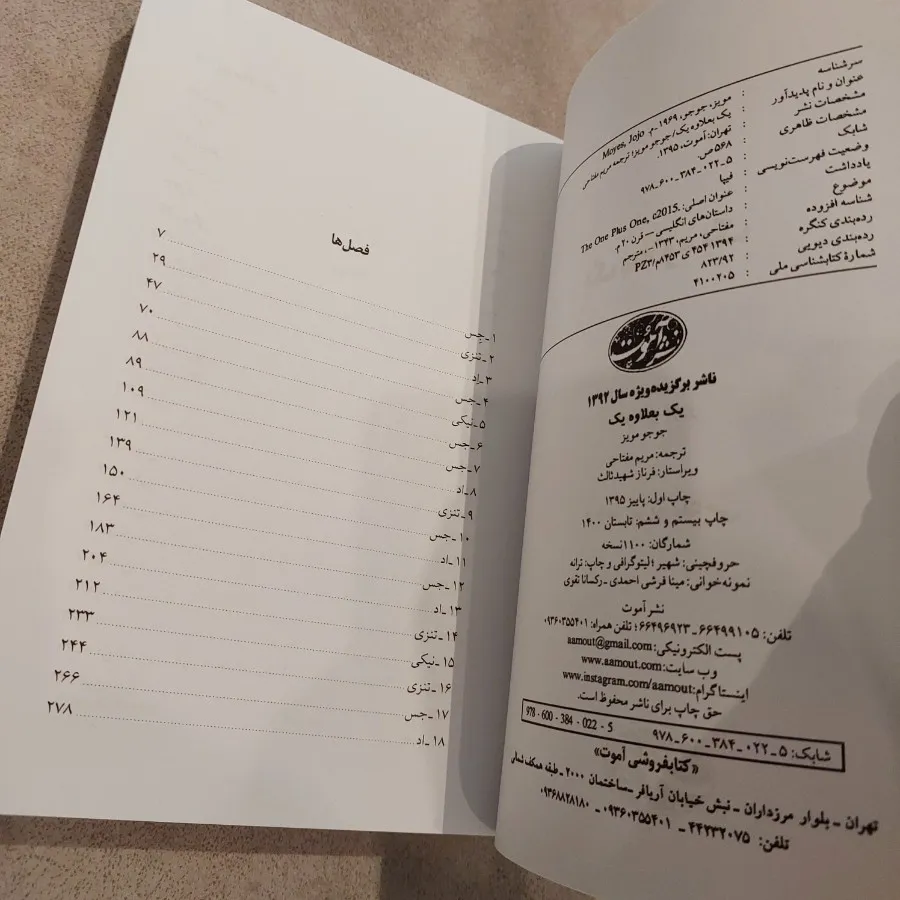 سرشناسه : مویز، جوجو، ۱۹۶۹ - م. Moyes, Jojo
عنوان و نام پدیدآور : یک بعلاوه یک/ جوجو مویز؛ ترجمه مریم مفتاحی
مشخصات نشر : تهران: آموت، ۱۳۹۵.
مشخصات ظاهری : ۵۶۸ ص.
شابک : ۹۷۸_۶۰۰_۳۸۴_۰۲۲_۵
وضعیت فهرست‌نویسی : فیپا
یادداشت : عنوان اصلی: The One Plus One, c2015.
موضوع : داستان‌های انگلیسی — قرن ۲۰م.
شناسه افزوده : مفتاحی، مریم، ۱۳۴۳ - ، مترجم
رده‌بندی کنگره : ۱۳۹۴ ۴۵۴ ی ۸۴۵۳م/PZ۳
رده‌بندی دیویی : ۸۲۳/۹۲
شمارهٔ کتابشناسی ملی : ۴۱۰۰۲۰۵
نشر آموت
ناشر برگزیده ویژه سال ۱۳۹۲
یک بعلاوه یک
جوجو مویز
ترجمه: مریم مفتاحی
ویراستار: فرناز شهیدثالث
چاپ اول: پاییز ۱۳۹۵
چاپ بیستم و ششم: تابستان ۱۴۰۰
شمارگان: ۱۱۰۰ نسخه
حروفچینی: شهیر؛ لیتوگرافی و چاپ: ترانه
نمونه‌خوانی: مینا فرشی احمدی - رکسانا تقوی
نشر آموت
تلفن: ۶۶۴۹۹۱۰۵ _ ۶۶۴۹۶۹۲۳؛ تلفن همراه: ۰۹۳۶۰۳۵۵۴۰۱
پست الکترونیکی: aamout@gmail.com
وب سایت: www.aamout.com
اینستاگرام: www.instagram.com/aamout
حق چاپ برای ناشر محفوظ است.
شابک: ۹۷۸_۶۰۰_۳۸۴_۰۲۲_۵ 978 - 600 - 384 - 022 - 5
«کتابفروشی آموت»
تهران - بلوار مرزداران - نبش خیابان آریافر - ساختمان ۲۰۰۰ - طبقه همکف شمالی
تلفن: ۴۴۲۳۲۰۷۵ - ۰۹۳۶۰۳۵۵۴۰۱ - ۰۹۳۶۸۸۲۸۱۸۰
فصل‌ها
۱ـ جس ۷
۲ـ تنزی ۲۹
۳ـ اِد ۴۷
۴ـ جس ۷۰
۵ـ نیکی ۸۸
۶ـ جس ۸۹
۷ـ جس ۱۰۹
۸ـ اد ۱۲۱
۹ـ تنزی ۱۳۹
۱۰ـ جس ۱۵۰
۱۱ـ اد ۱۶۴
۱۲ـ جس ۱۸۳
۱۳ـ اد ۲۰۴
۱۴ـ تنزی ۲۱۲
۱۵ـ نیکی ۲۳۳
۱۶ـ تنزی ۲۴۴
۱۷ـ جس ۲۶۶
۱۸ـ اد ۲۷۸